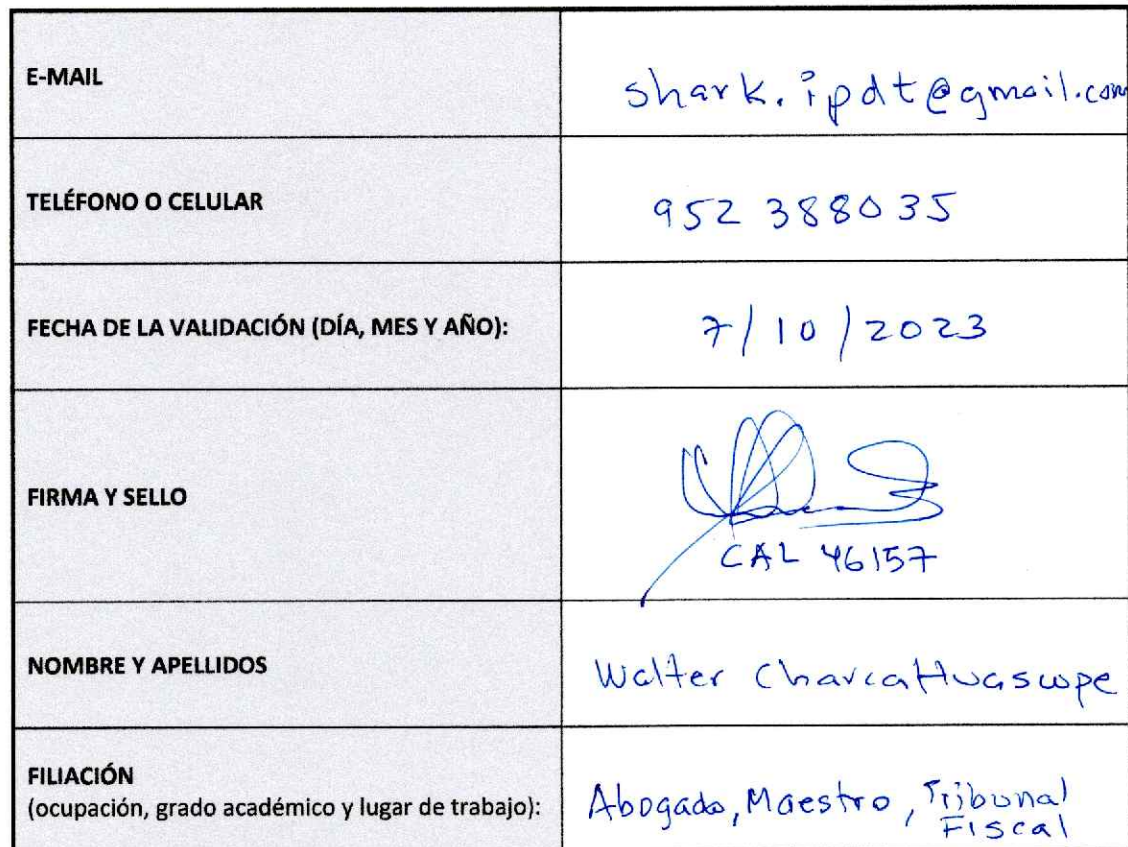 E-MAIL
shark.ipdt@gmail.com
TELÉFONO O CELULAR
952 388035
FECHA DE LA VALIDACIÓN (DÍA, MES Y AÑO):
7/10/2023
FIRMA Y SELLO
CAL 46157
NOMBRE Y APELLIDOS
Walter Charca
FILIACIÓN
(ocupación, grado académico y lugar de trabajo):
Abogado, Maestro, Tribunal
Fiscal